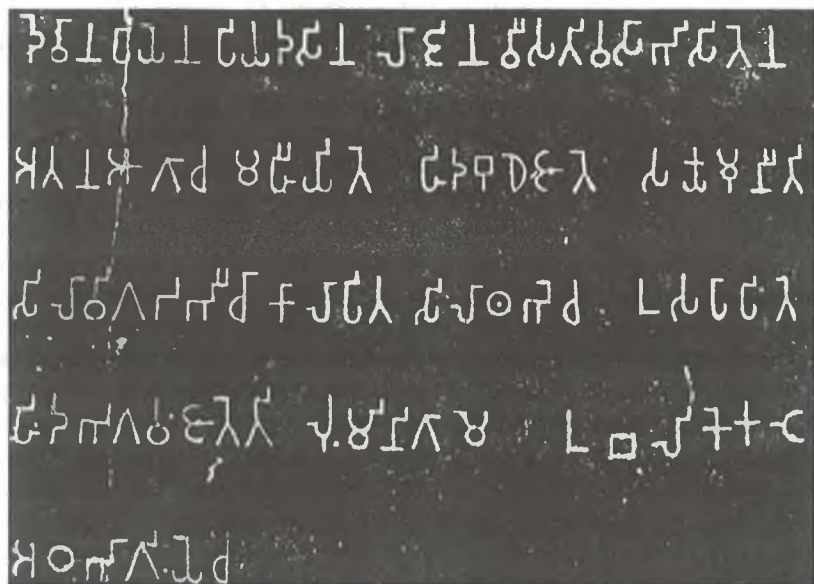 𑀤𑁂𑀯𑀸𑀦𑀧𑀺𑀬𑁂𑀦 𑀧𑀺𑀬𑀤𑀲𑀺𑀦 𑀮𑀸𑀚𑀺𑀦 𑀯𑀻𑀲𑀢𑀺𑀯𑀲𑀸𑀪𑀺𑀲𑀺𑀢𑁂𑀦
𑀅𑀢𑀦𑀆𑀕𑀸𑀘 𑀫𑀳𑀻𑀬𑀺𑀢𑁂 𑀳𑀺𑀤𑀩𑀼𑀥𑁂𑀚𑀸𑀢𑁂 𑀲𑀓𑁆𑀬𑀫𑀼𑀦𑀻𑀢𑀺
𑀲𑀺𑀮𑀸𑀯𑀺𑀕𑀟𑀪𑀻𑀘𑀸𑀓𑀸𑀮𑀸𑀧𑀺𑀢 𑀲𑀺𑀮𑀸𑀣𑀪𑁂𑀘 𑀉𑀲𑀧𑀸𑀧𑀺𑀢𑁂
𑀳𑀺𑀤𑀪𑀕𑀯𑀁𑀚𑀸𑀢𑁂𑀢𑀺 𑀮𑀼𑀁𑀫𑀺𑀦𑀺𑀕𑀸𑀫𑁂 𑀉𑀩𑀮𑀺𑀓𑁂𑀓𑀝𑁂
𑀅𑀞𑀪𑀸𑀕𑀺𑀬𑁂𑀘